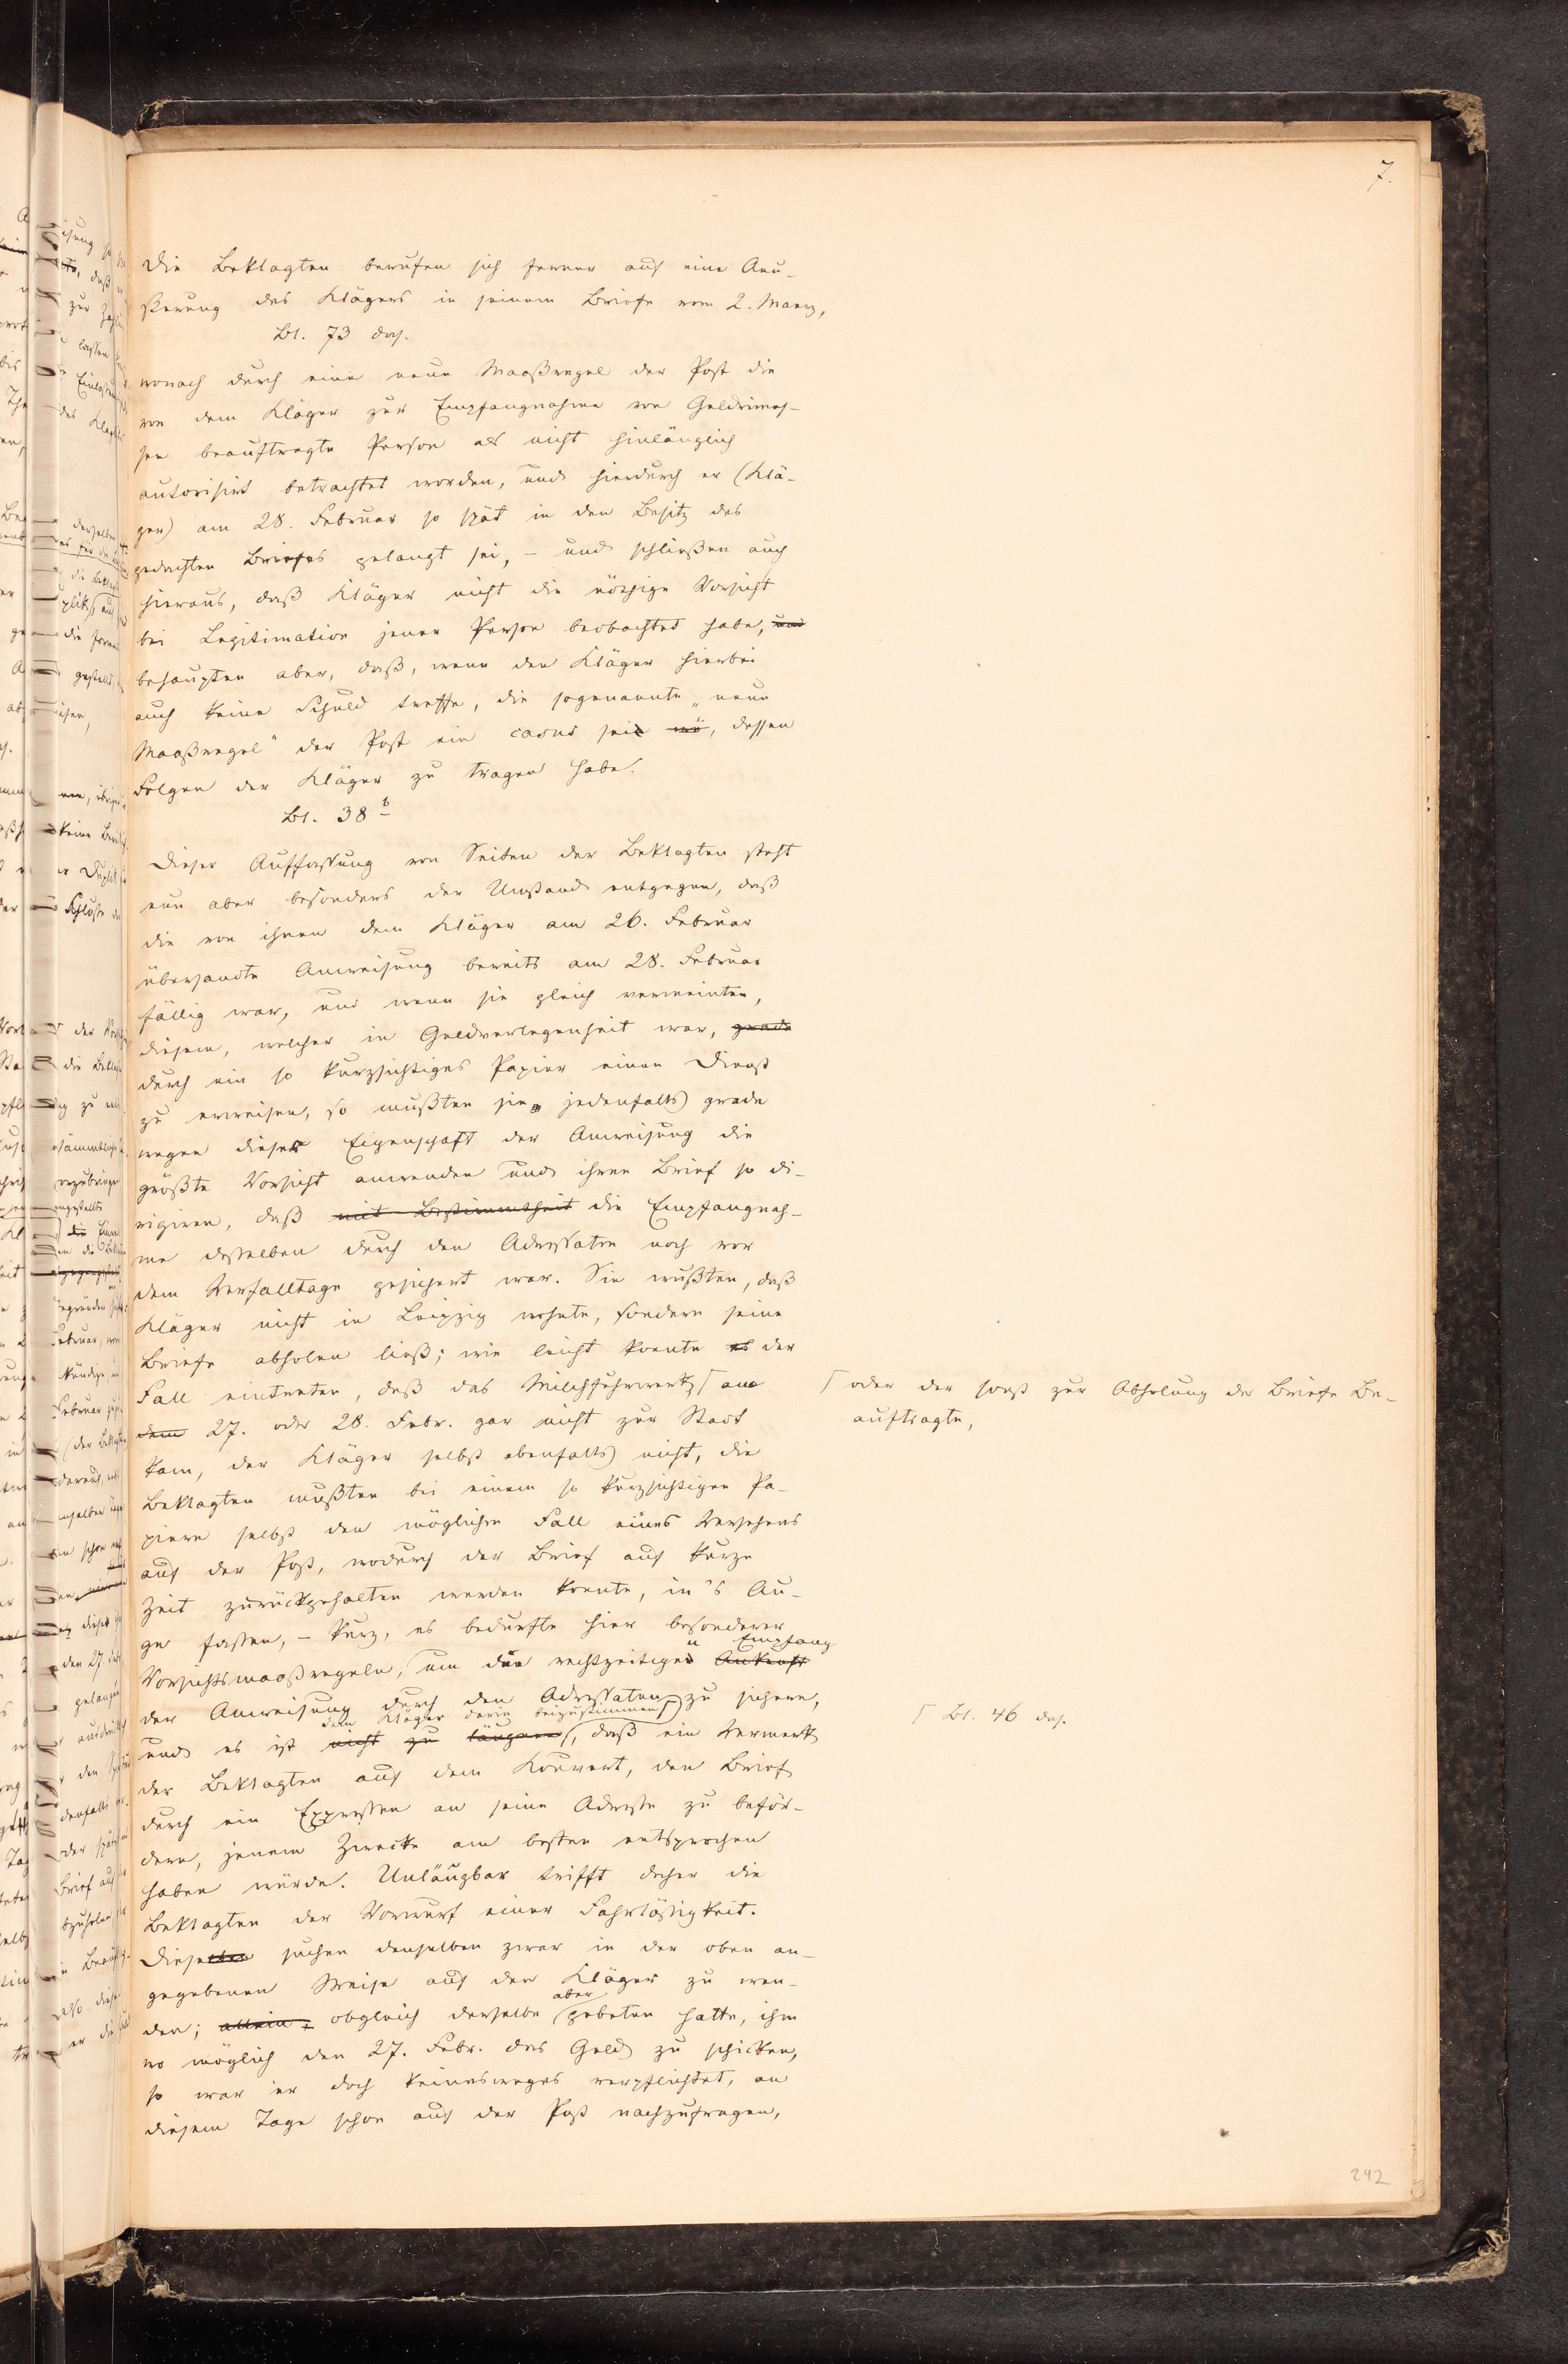 7.
Die Beklagten berufen sich ferner auf eine Aeu-
ßerung des Klägers in seinem Briefe vom 2. Maerz,
Bl. 73 das.
wonach durch eine neue Maaßregel der Post die
von dem Kläger zur Empfangnahme von Geldrimes-
sen beauftragte Person als nicht hinlänglich
autorisirt betrachtet worden, und hierdurch er (Klä-
ger) am 28. Februar so spät in den Besitz des
gedachten Briefes gelangt sei, – und schließen auch
hieraus, daß Kläger nicht die nöthige Vorsicht
bei Legitimation jener Person beobachtet habe, und
behaupten aber, daß, wenn den Kläger hierbei
auch keine Schuld treffe, die sogenannte „neue
Maaßregel" der Post ein casus sei, dessen
Folgen der Kläger zu tragen habe.
Bl. 38 b
Dieser Auffassung von Seiten der Beklagten steht
nun aber besonders der Umstand entgegen, daß
die von ihnen dem Kläger am 26. Februar
übersandte Anweisung bereits am 28. Februar
fällig war, und wenn sie gleich vermeinten,
diesem, welcher in Geldverlegenheit war, grade
durch ein so kurzsichtiges Papier einen Dienst
zu erweisen, so mußten sie jedenfalls grade
wegen dieser Eigenschaft der Anweisung die
größte Vorsicht anwenden und ihren Brief so di-
rigiren, daß mit Bestimmtheit die Empfangnah-
me desselben durch den Adressaten noch vor
dem Verfalltage gesichert war. Sie wußten, daß
Kläger nicht in Leipzig wohnte, sondern seine
Briefe abholen ließ; wie leicht konnte es der
Fall eintreten, daß das Milchfuhrwerk ⌈ am
dem 27. oder 28. Febr. gar nicht zur Stadt
⌈ oder der sonst zur Abholung der Briefe Be-
auftragte,
kam, der Kläger selbst ebenfalls nicht, die
Beklagten mußten bei einem so kurzsichtigen Pa-
piere selbst den möglichen Fall eines Versehens
auf der Post, wodurch der Brief auf kurze
Zeit zurückgehalten werden konnte, in's Au-
ge fassen, – kurz, es bedurfte hier besonderer
Vorsichtsmaaßregeln, um den rechtzeitigen Ankunft Empfang
der Anweisung durch den Adressaten zu sichern,
und es ist nicht zu läugnen dem Kläger darin beizustimmen ⌈, daß ein Vermerk
⌈ Bl. 46 das.
der Beklagten auf dem Kouvert, den Brief
durch ein Expressen an seine Adresse zu beför-
dern, jenem Zwecke am besten entsprochen
haben würde. Unläugbar trifft daher die
Beklagten der Vorwurf einer Fahrlässigkeit.
Dieselben suchen denselben zwar in der oben an-
gegebenen Weise auf den Kläger zu wen-
den; allein, obgleich derselbe aber gebeten hatte, ihm
wo möglich den 27. Febr. das Geld zu schicken,
so war er doch keineswegs verpflichtet, an
diesem Tage schon auf der Post nachzufragen,
242